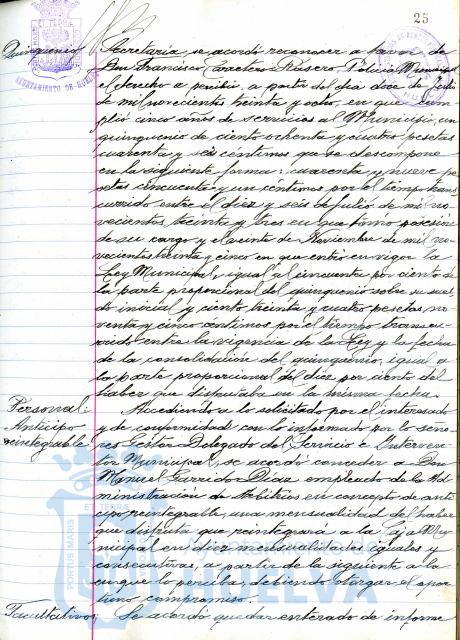 25
Quinquenio
Secretaría se acordó reconocer a favor de
Don Francisco Carretero Rosero, Policía Municipal
el derecho a percibir, a partir del día doce de Julio
de mil novecientos treinta y ocho, en que cum-
plió cinco años de servicios al Municipio, un
quinquenio de ciento ochenta y cuatro pesetas
cuarenta y seis céntimos que se descompone
en la siguiente forma: cuarenta y nueve pe-
setas cincuenta y un céntimos por el tiempo trans-
currido entre el diez y seis de Julio de mil no-
vecientos treinta y tres en que tomó posesión
de su cargo y el veinte de Noviembre de mil no-
vecientos treinta y cinco en que entró en vigor la
Ley Municipal, igual al cincuenta por ciento de
la parte proporcional del quinquenio sobre su suel-
do inicial y ciento treinta y cuatro pesetas no-
venta y cinco céntimos por el tiempo transcu-
rrido entre la vigencia de la Ley y la fecha
de la consolidación del quinquenio, igual a
la parte proporcional del diez por ciento del
haber que disfrutaba en la misma fecha.
Personal:
Anticipo
reintegrable
Accediendo a lo solicitado por el interesado
y de conformidad con lo informado por lo seño-
res Gestor Delegado del Servicio e Interven-
tor Municipal, se acordó conceder a Don
Manuel Garrido Díaz empleado de la Ad-
ministración de Arbitrios en concepto de anti-
cipo reintegrable, una mensualidad del haber
que disfruta que reintegrará a la Caja Mu-
nicipal en diez mensualidades iguales y
consecutivas, a partir de la siguiente a la
en que lo perciba, debiendo otorgar el opor-
tuno compromiso.
Facultativos
Se acordó quedar enterado de informe
AYUNTAMIENTO DE HUELVA
PORTUS MARIS
ET TERRAE
HUELVA